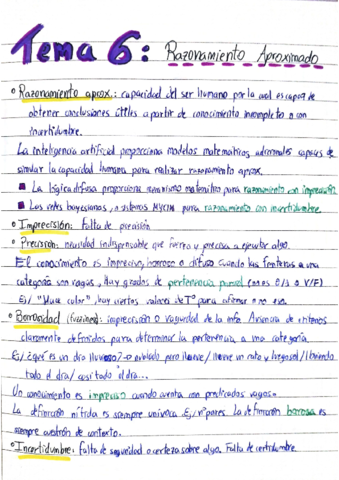 Tema 6: Razonamiento Aproximado
• Razonamiento aprox.: capacidad del ser humano por la cual es capaz de
obtener conclusiones útiles a partir de conocimiento incompleto o con
incertidumbre.
La inteligencia artificial proporciona modelos matemáticos adicionales capaces de
simular la capacidad humana para realizar razonamiento aprox.
■ La lógica difusa proporciona mecanismo matemático para razonamiento con imprecisión
■ Las redes bayesianas, o sistemas MYCIN para razonamiento con incertidumbre.
• Imprecisión: Falta de precisión
• Precisión: necesidad indispensable que fuerza y precisa a ejecutar algo.
El conocimiento es impreciso, borroso o difuso cuando las fronteras a una
categoría son vagas, Hay grados de pertenencia parcial (no es 0/1 o V/F)
Ej/ "Hace calor", hay ciertos valores de Tº para afirmar o no eso.
• Borrosidad (fuzziness): imprecisión o vaguedad de la info. Ausencia de criterios
claramente definidos para determinar la pertenencia a una categoría.
Ej/ ¿Qué es un día lluvioso? → nublado pero llueve / llueve un rato y luego sol / lloviendo
todo el día / casi todo el día...
Un conocimiento es impreciso cuando cuenta con predicados vagos.
La definición nítida es siempre unívoca Ej/ nº pares. La definición borrosa es
siempre de contexto.
• Incertidumbre: Falta de seguridad o certeza sobre algo. Falta de certidumbre